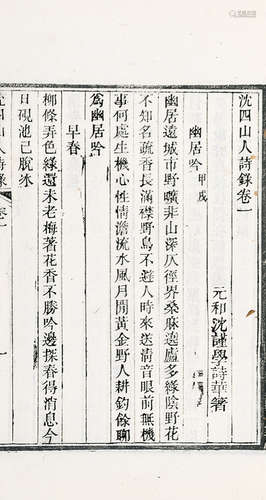 沈四山人詩錄卷一
元和沈謹學詩華著
幽居吟 甲戌
幽居遠城市野曠非山深仄徑界桑麻遶廬多綠陰野花
不知名疏香長滿襟野鳥不避人時來送清音眼前無機
事何處生機心性情澹流水風月閒黃金野人耕釣餘聊
爲幽居吟
早春
柳條弄色綠還未老梅著花香不勝吟邊探春得消息今
日硯池已脫冰
沈四山人詩錄 卷一
一